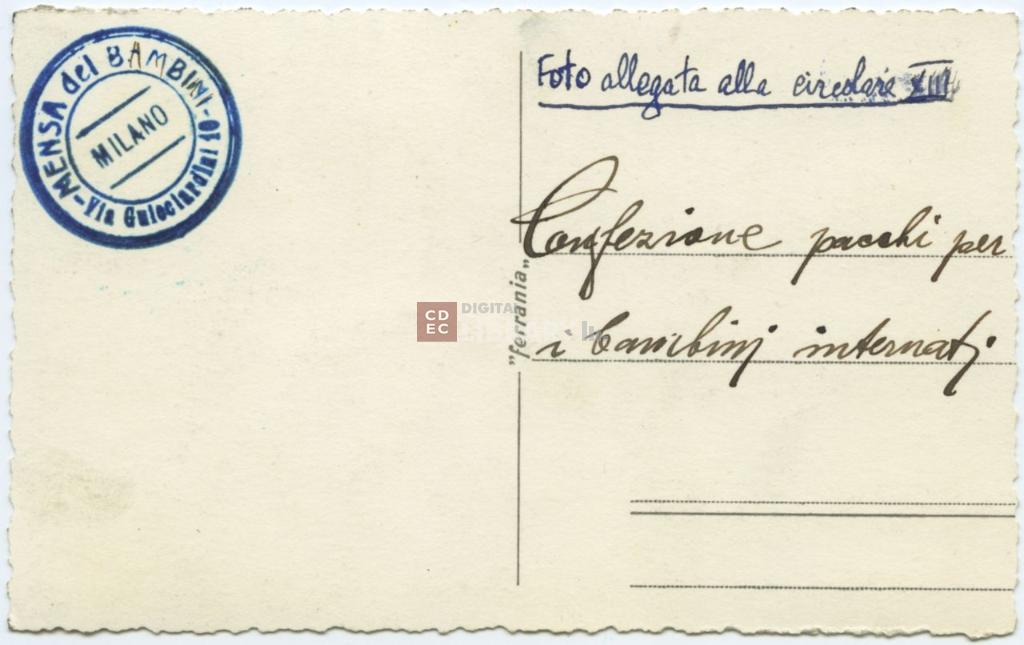 MENSA dei BAMBINI -
MILANO
- Via Guicciardini 10
Foto allegata alla circolare XIII
Confezione pacchi per
i bambini internati
"ferrania"
CD
EC
DIGITAL